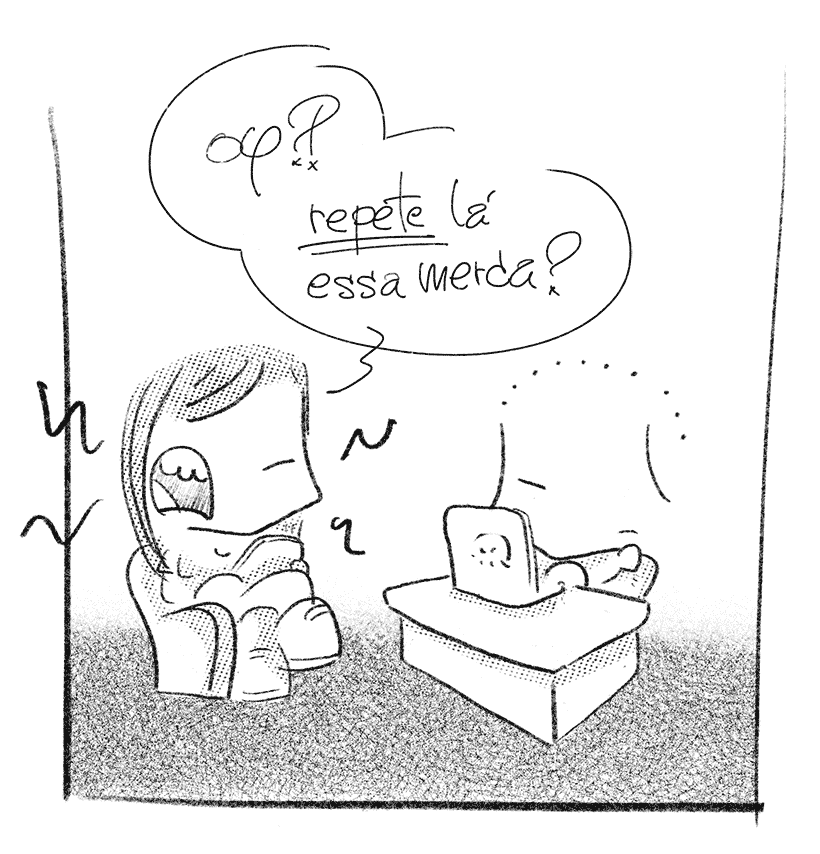 oq?!
repete lá
essa merda?